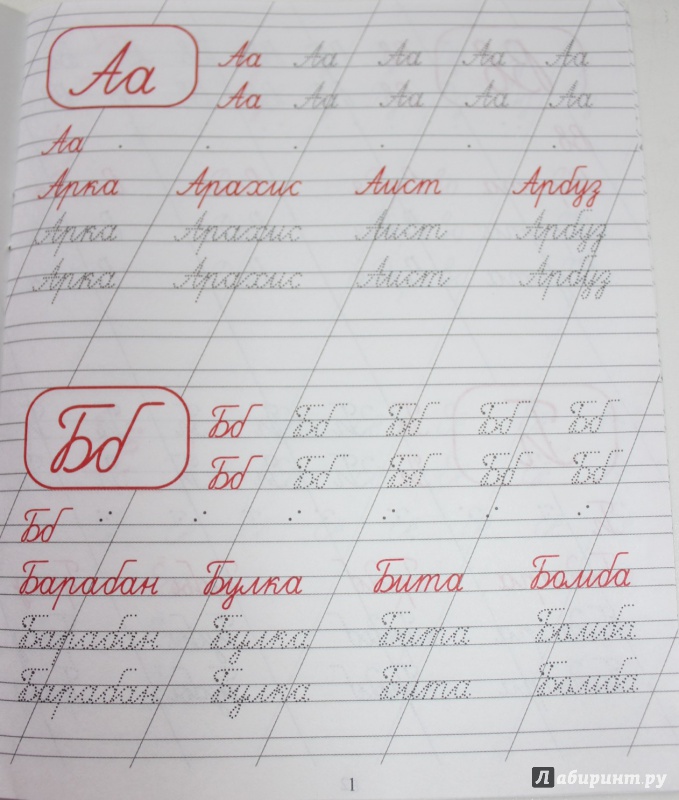 Аа Аа Аа Аа Аа Аа
Аа Аа Аа Аа Аа
Аа
Арка Арахис Аист Арбуз
Арка Арахис Аист Арбуз
Арка Арахис Аист Арбуз
Бб Бб Бб Бб Бб Бб
Бб Бб Бб Бб Бб
Бб
Барабан Булка Бита Бомба
Барабан Булка Бита Бомба
Барабан Булка Бита Бомба
1
Лабиринт.ру